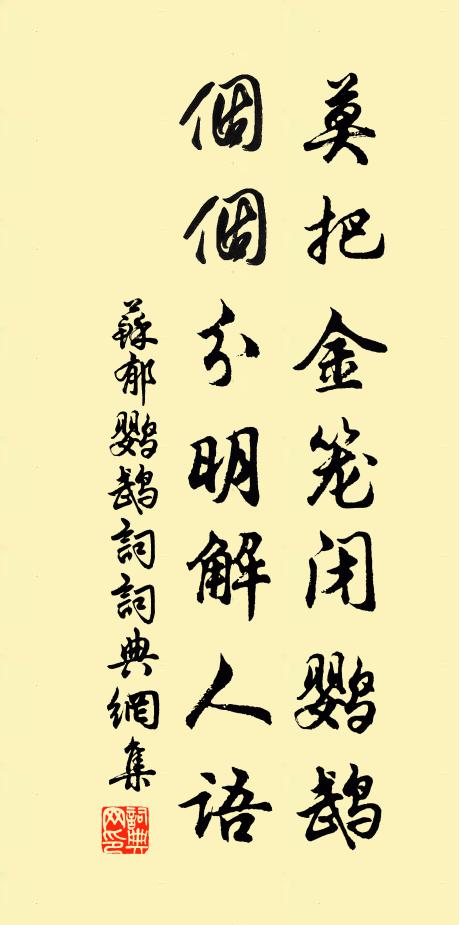 莫把金笼闭鹦鹉
個個分明解人語
蘇郁鹦鹉詞詞典網集
詞典網印